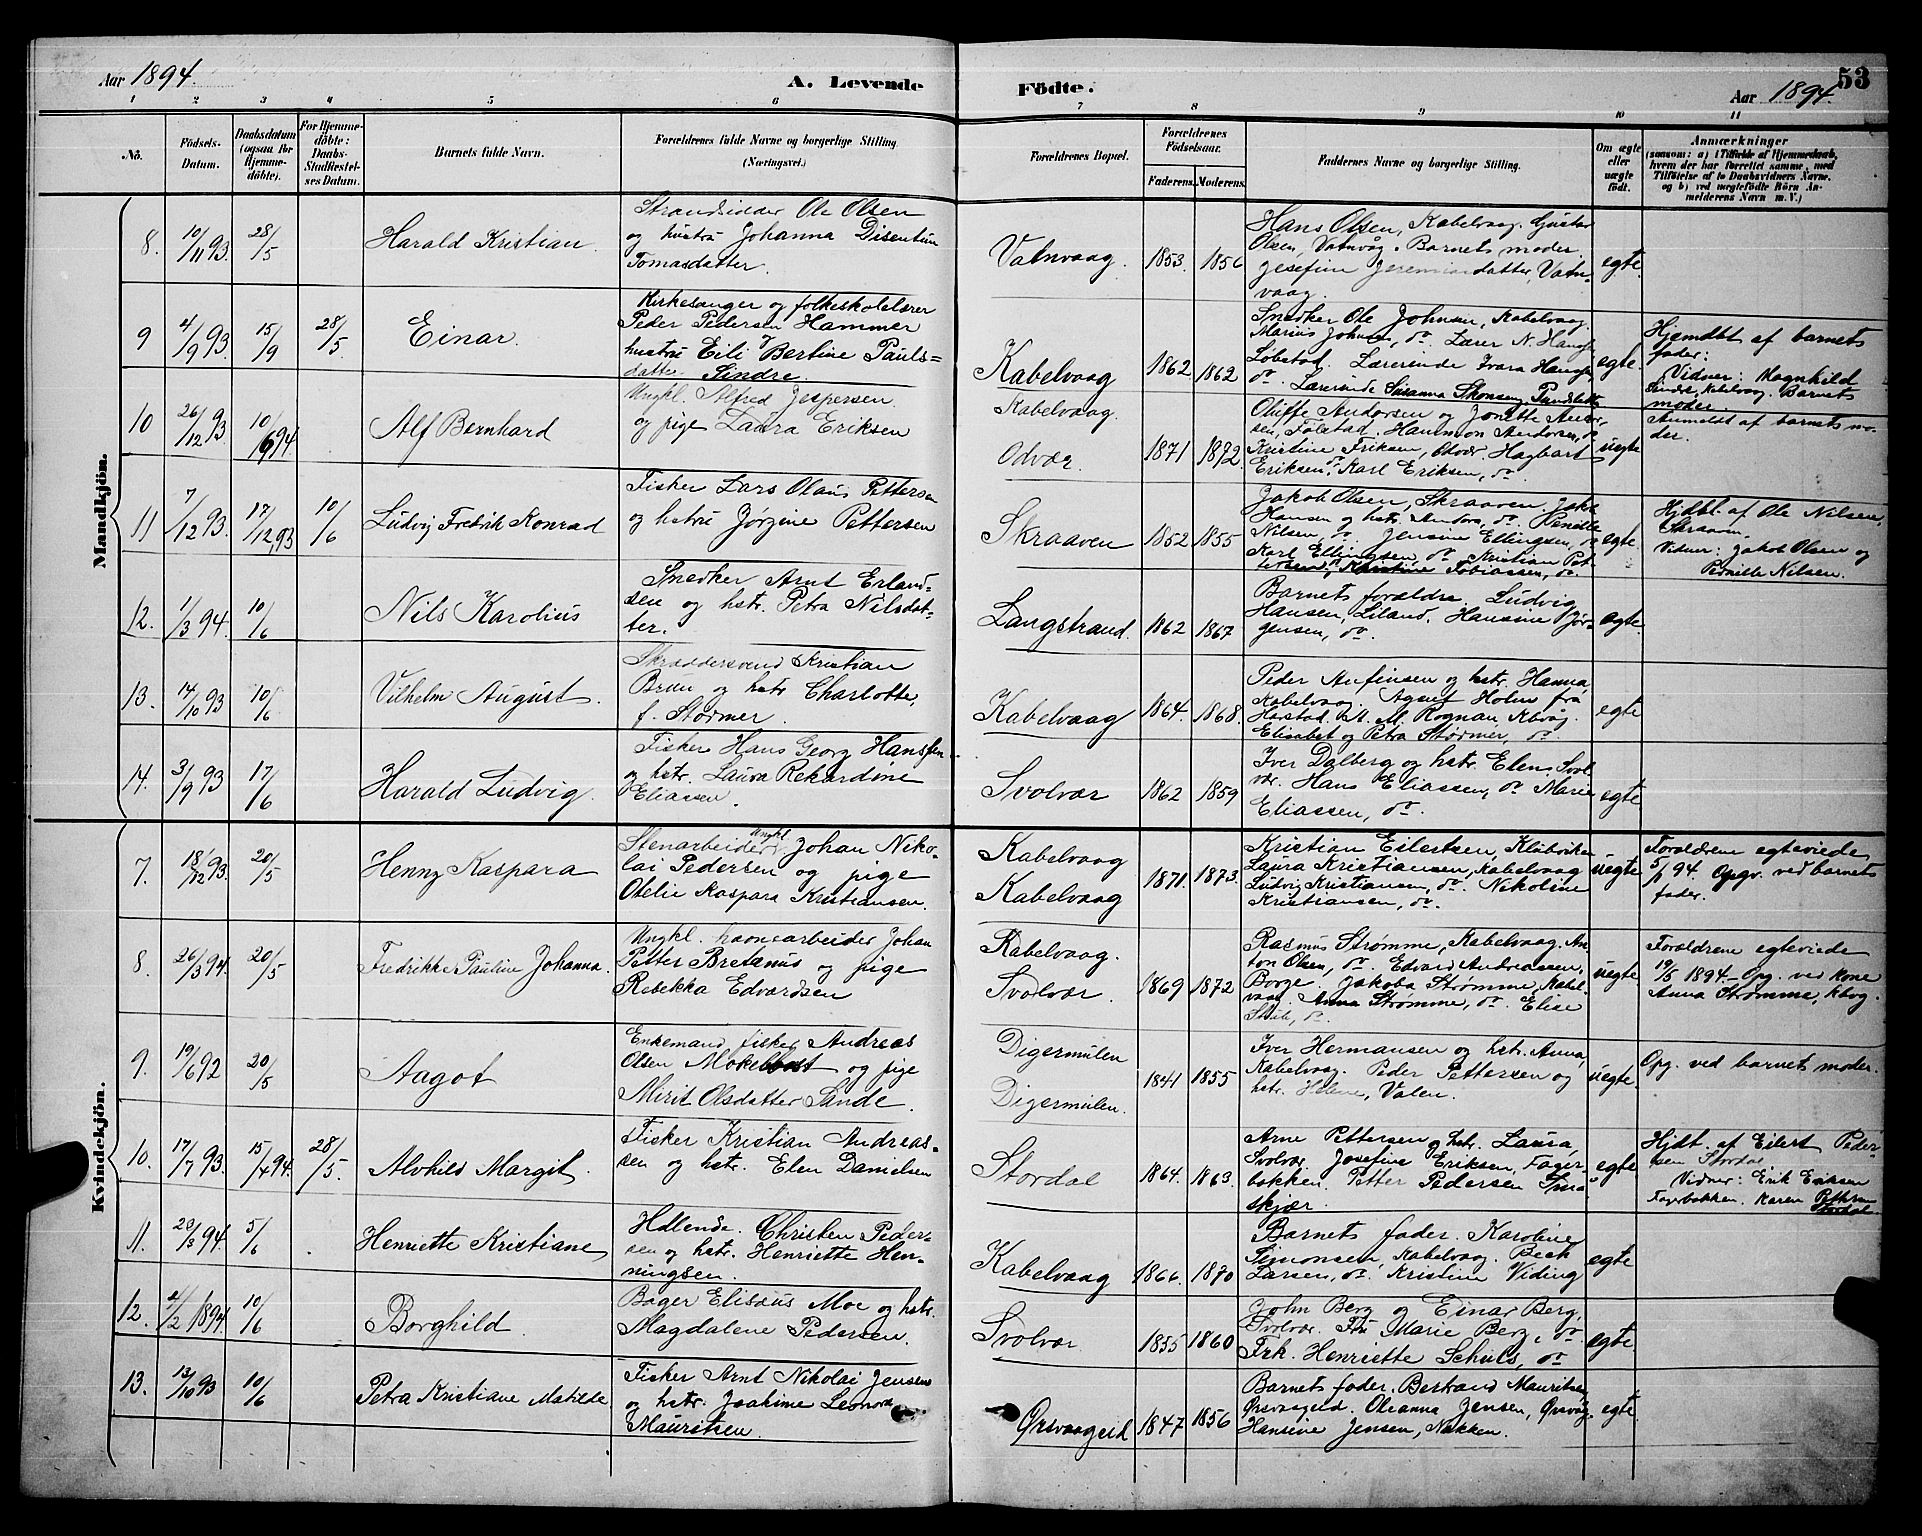 Aar 1894.
A. Levende
Födte.
Aar 1894.
53
1 2 3 4 5 6 7 8 9 10 11
No.
Födsels-
Datum.
Daabsdatum
(ogsaa for
Hjemme-
döbte).
For Hjemme-
döbte:
Daabs-
Stadfæstel-
ses Datum.
Barnets fulde Navn.
Forældrenes fulde Navne og borgerlige Stilling
(Næringsvei.)
Forældrenes Bopæl.
Forældrenes
Födselsaar.
Faderens. Moderens.
Faddernes Navne og borgerlige Stilling.
Om ægte
eller
uægte
födt.
Anmærkninger
(saasom: a) i Tilfælde af Hjemmedaab,
hvem der har forrettet samme, med
Tilföielse af to Daabsvidners Navne,
og b) ved uægtefödte Börn An-
melderens Navn m. V.)
Mandkjön.
8. 10/11 93. 28/5
Harald Kristian.
Strandsidder Ole Olsen
og hustru Johanna Disentum
Tomasdatter.
Vatnvaag. 1853. 1856
Hans Olsen, Kabelvaag. Gustav
Olsen, Vatnvåg. Barnets moder.
Josefine Jeremiasdatter, Vatn-
vaag.
egte.
9 4/9 93. 15/9 28/5
Einar.
Kirkesanger og folkeskolelærer
Peder Pedersen Hammer
hustru Eili Bertine Pauls-
datter Sindre.
Kabelvaag 1862. 1862
Snedker Ole Johnsen, Kabelvaag.
Marius Johnsen, do. Lærer N. Hansen
Løbstad. Lærerinde Ivara Hansen,
do. Lærerinde Susanna Skonseng,
egte
Hjemdbt af barnets
fader:
Vidner: Magnhild
Sindre, Kabelvaag. Barnets
moder.
10 26/12 93. 10/6 94
Alf Bernhard
Ungkl. Alfred Jespersen
og pige Laura Eriksen
Kabelvaag.
Odvær. 1871 1872.
Oluffe Andorsen og Jonette Andor-
sen, Følstad. Hammon Andorsen, do
Kristine Eriksen, Odvær Hagbart
Eriksen, do Karl Eriksen, do.
uegte
Anmeldt af barnets mo-
der.
11 7/12 93. 17/12 93 10/6
Ludvig Fredrik Konrad
Fisker Lars Olaus Pettersen
og hstru Jørgine Pettersen
Skraaven 1852 1855
Jakob Olsen, Skraaven. Jakob
Hansen og hstr. Andora, do. Pernille
Nilsen, do. Jensine Ellingsen, do
Karl Ellingsen, do. Kristian Pet-
tersen, do, Kristine Tobiassen, do.
egte
Hjdbt. af Ole Nilsen,
Skraaven.
Vidner: Jakob Olsen og
Pernille Nilsen.
12. 1/3 94. 10/6
Nils Karolius
Snedker Arnt Erland-
sen og hstr. Petra Nilsdat-
ter.
Langstrand. 1862 1867
Barnets forældre, Ludvig
Hansen, Liland. Hansine Jør-
gensen, do.
egte.
13. 14/10 93 10/6
Vilhelm August.
Skræddersvend Kristian
Bruu og hstr. Charlotte,
f. Størmer.
Kabelvaag 1864. 1868.
Peder Anfinsen og hstr. Hanna,
Kabelvaag. Agnes Holm fra
Harstad. M. Rognan, Kbvåg.
Elisabet og Petra Størmer, do.
egte
14. 3/9 93 17/6
Harald Ludvig.
Fisker Hans Georg Hanssen
og hstr. Laura Rekardine
Eliassen.
Svolvær 1862 1859
Iver Dalberg og hstr. Elen, Svol-
vær. Hans Eliassen, do Marie
Eliassen, do.
egte
Kvindekjön.
7. 18/12 93. 20/5
Henny Kaspara
Stenarbeider Ungkl. Johan Niko-
lai Pedersen og pige
Otelie Kaspara Kristiansen.
Kabelvaag
Kabelvaag 1871. 1873.
Kristian Eilertsen, Klubviken
Laura Kristiansen, Kabelvaag
Ludvig Kristiansen, do. Nikoline
Kristiansen, do.
uegte
Forældrene egteviede
5/1 94. Opgv. ved barnets
fader.
8. 26/3 94. 20/5
Fredrikke Pauline Johanna.
Ungkl. havnearbeider Johan
Petter Bretanus og pige
Rebekka Edvardsen
Kabelvaag.
Svolvær. 1869 1872
Rasmus Strømme, Kabelvaag. An-
ton Olsen, do. Edvard Andreassen,
Borge. Jakoba Strømme, Kabel-
vaag, Anna Strømme, do. Elise
do.
uegte
Forældrene egteviede
19/5 1894. Opg. ved kone
Anna Strømme, Kbvg.
9. 19/6 92 20/5
Aagot
Enkemand fisker Andreas
Olsen og pige
Mirit Olsdatter Sande.
Digermulen
Digermulen. 1841 1855
Iver Hermansen og hstr. Anna,
Kabelvaag. Peder Pettersen og
hstr. Helene, Valen.
uegte
Opg. ved barnets moder.
10. 17/7 93. 15/4 94. 28/5
Alvhild Margit.
Fisker Kristian Andreas-
sen og hstr. Elen Danielsen
Stordal 1864. 1863.
Arne Pettersen og hstr. Laura,
Svolvær. Josefine Eriksen, Fager-
bakken. Petter Pedersen
skjær.
egte
Hjdt. af Eilert Peder-
sen Stordal
Vidner: Erik Eriksen
Fagerbakken. Karen Pettersen
Stordal.
11. 23/3 94. 5/6
Henriette Kristiane
Hdlende. Christen Peder-
sen og hstr. Henriette Hen-
ningsen.
Kabelvaag 1866. 1870
Barnets fader. Karoline
Simonsen, Kabelvaag. Beck
Larsen, do. Kristine Viding
egte
12. 2/2 1894. 10/6
Borghild.
Bager Elisæus Moe og hstr.
Magdalene Pedersen.
Svolvær 1855 1860
John Berg og Einar Berg,
Svolvær. Fru Marie Berg, do.
Frk. Henriette Schuls, do
egte
13. 13/10 93 10/6
Petra Kristiane Matilde
Fisker Arnt Nikolai Jensen
og hstr. Joakime Leonora
Mauritsen
Ørsvaageid 1847 1856
Barnets fader. Bertrand Mauritsen,
Ørsvaageid. Oleanna Jensen, Ørsvåg.
Hansine Jensen, Nakken.
egte